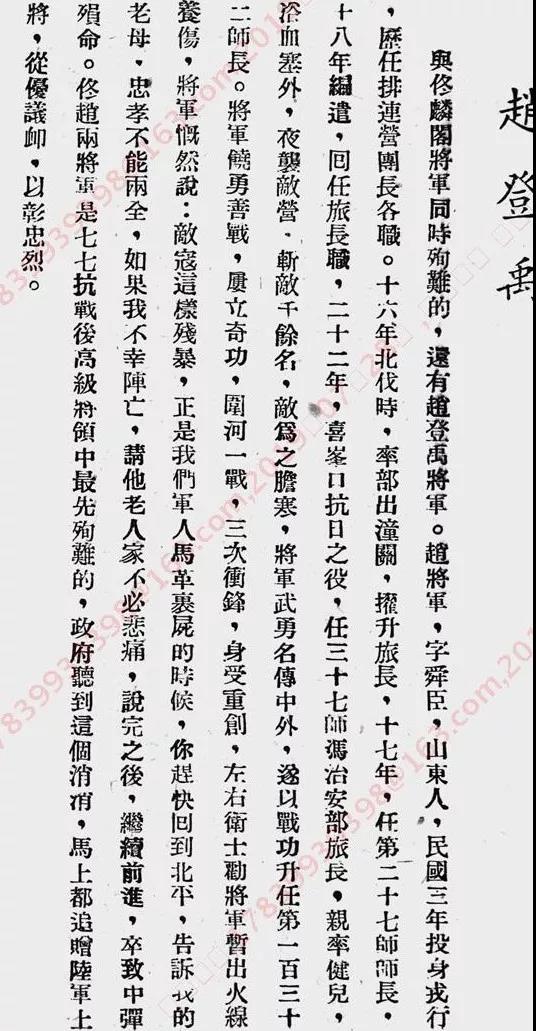 趙登禹
與佟麟閣將軍同時殉難的，還有趙登禹將軍。趙將軍，字舜臣，山東人，民國三年投身戎行
，歷任排連營團長各職。十六年北伐時，率部出潼關，擢升旅長，十七年，任第二十七師師長，
十八年編遣，回任旅長職，二十二年，喜峯口抗日之役，任三十七師馮治安部旅長，親率健兒，
浴血塞外，夜襲敵營，斬敵千餘名，敵爲之膽寒，將軍武勇名傳中外，遂以戰功升任第一百三十
二師長。將軍饒勇善戰，屢立奇功，圍河一戰，三次衝鋒，身受重創，左右衛士勸將軍暫出火線
養傷，將軍慨然說：敵寇這樣殘暴，正是我們軍人馬革裹屍的時候，你趕快回到北平，告訴我的
老母，忠孝不能兩全，如果我不幸陣亡，請他老人家不必悲痛，說完之後，繼續前進，卒致中彈
殞命。佟趙兩將軍是七七抗戰後高級將領中最先殉難的，政府聽到這個消息，馬上都追贈陸軍上
將，從優議卹，以彰忠烈。